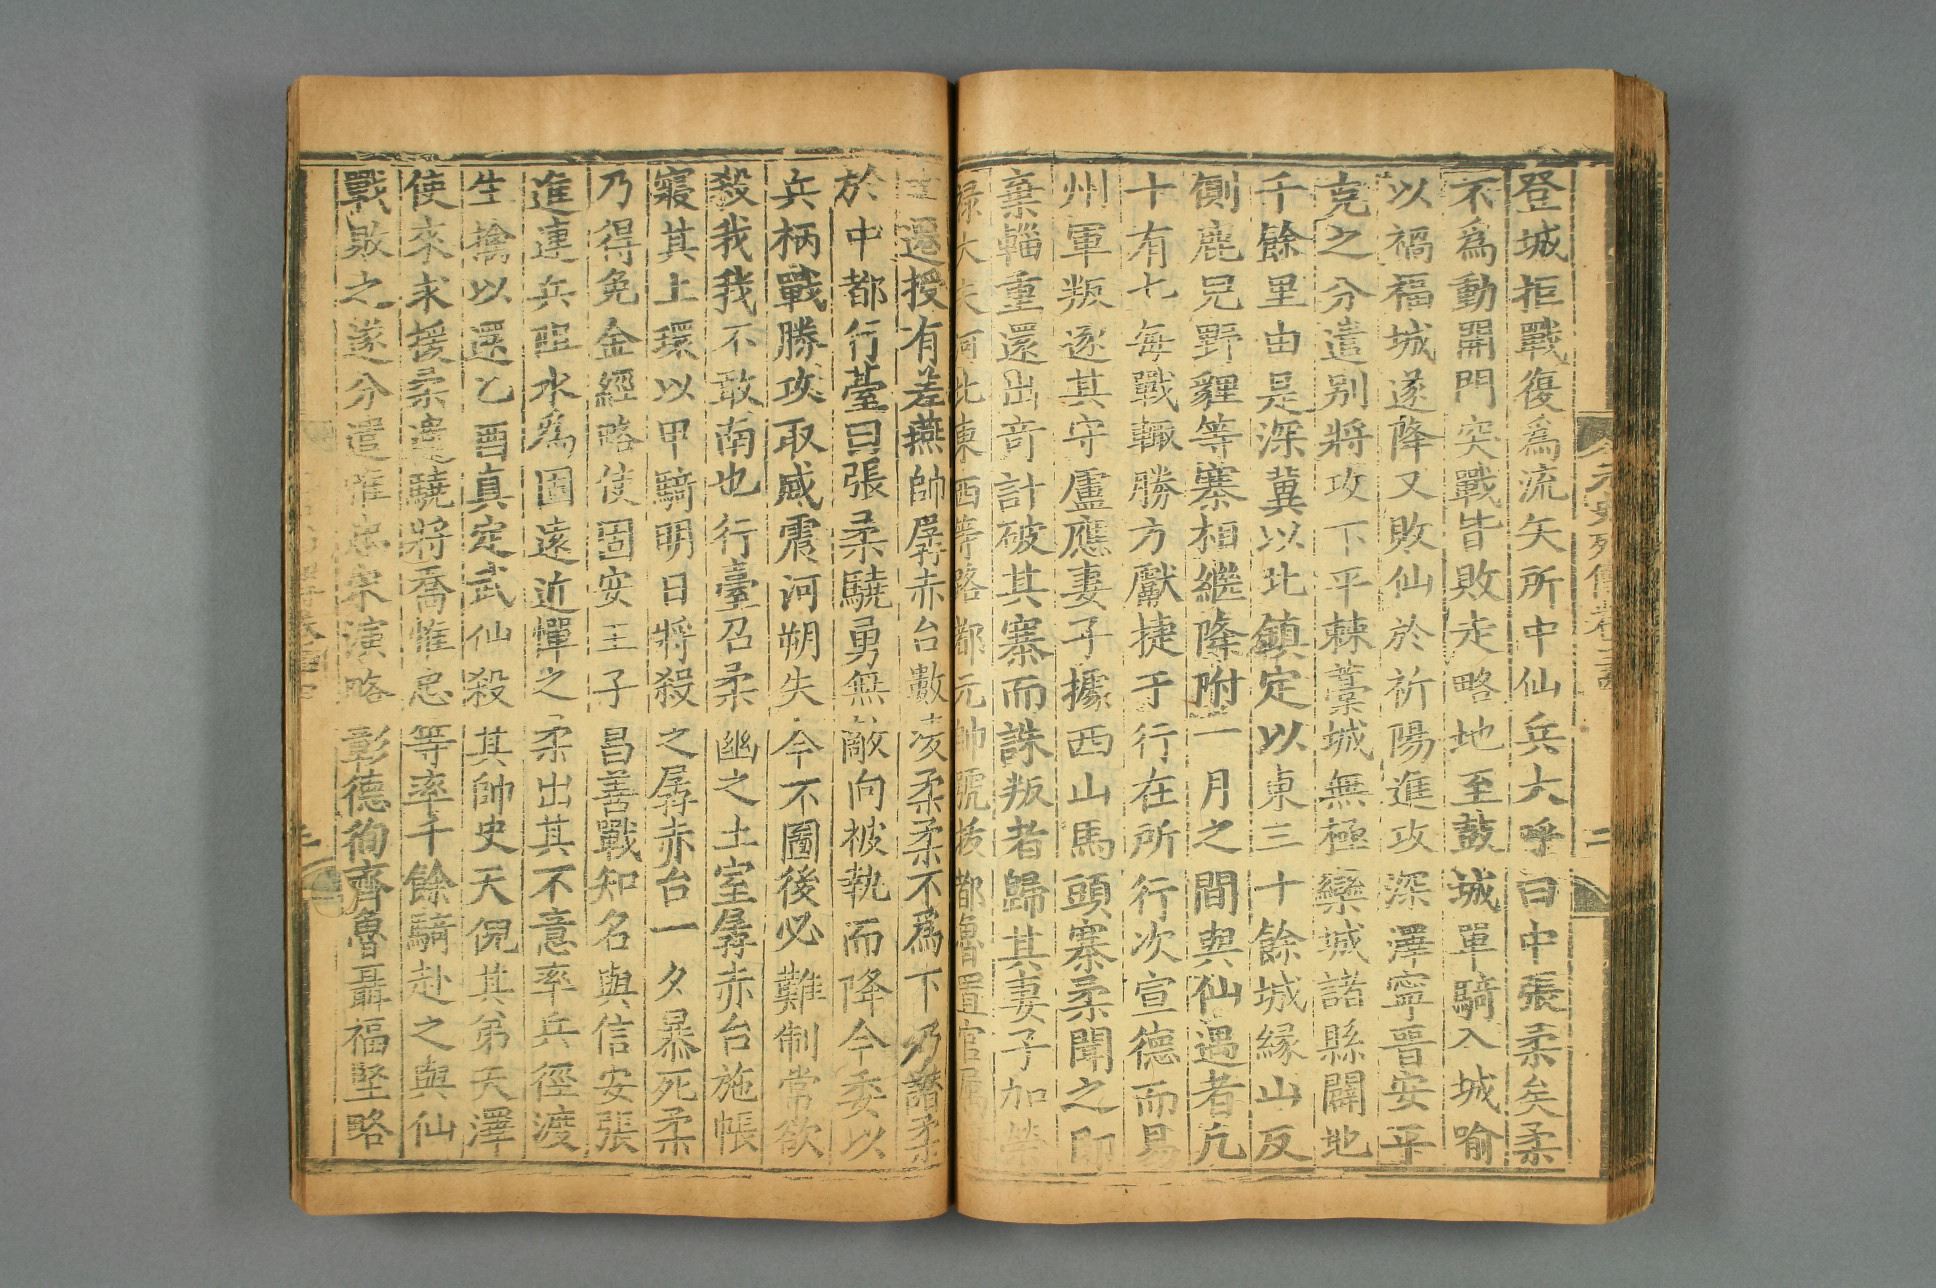 登城拒戰復爲流矢所中仙兵大呼曰中張柔矣柔
不爲動開門突戰皆敗走略地至鼓城單騎入城喻
以禍福城遂降又敗仙於祈陽進攻深澤寧晉安平
克之分遣别將攻下平棘藁城無極欒城諸縣闢地
千餘里由是深冀以北鎮定以東三十餘城縁山反
側鹿兒野貍等寨相繼降附一月之間與仙遇者凢
十有七每戰輒勝方獻捷于行在所行次宣德而易
州軍叛逐其守盧應妻子據西山馬頭寨柔聞之即
棄輜重還出竒計破其寨而誅叛者歸其妻子加榮
禄大夫河北東西等路都元帥號拔都魯置官属
還授有差燕帥孱赤台數凌柔柔不爲下乃譖柔
於中都行䑓曰張柔驍勇無敵向被執而降今委以
兵柄戰勝攻取威震河朔失今不圖後必難制常欲
殺我我不敢南也行臺召柔幽之土室孱赤台施帳
寢其上環以甲騎明日將殺之孱赤台一夕暴死柔
乃得免金經略使固安王子昌善戰知名與信安張
進連兵阻水爲固遠近憚之柔出其不意率兵徑渡
生擒以還乙酉真定武仙殺其帥史天倪其弟天澤
使來求援柔遣驍將喬惟忠等率千餘騎赴之與仙
戰敗之遂分遣惟忠宋演略彰德徇齊魯聶福堅略